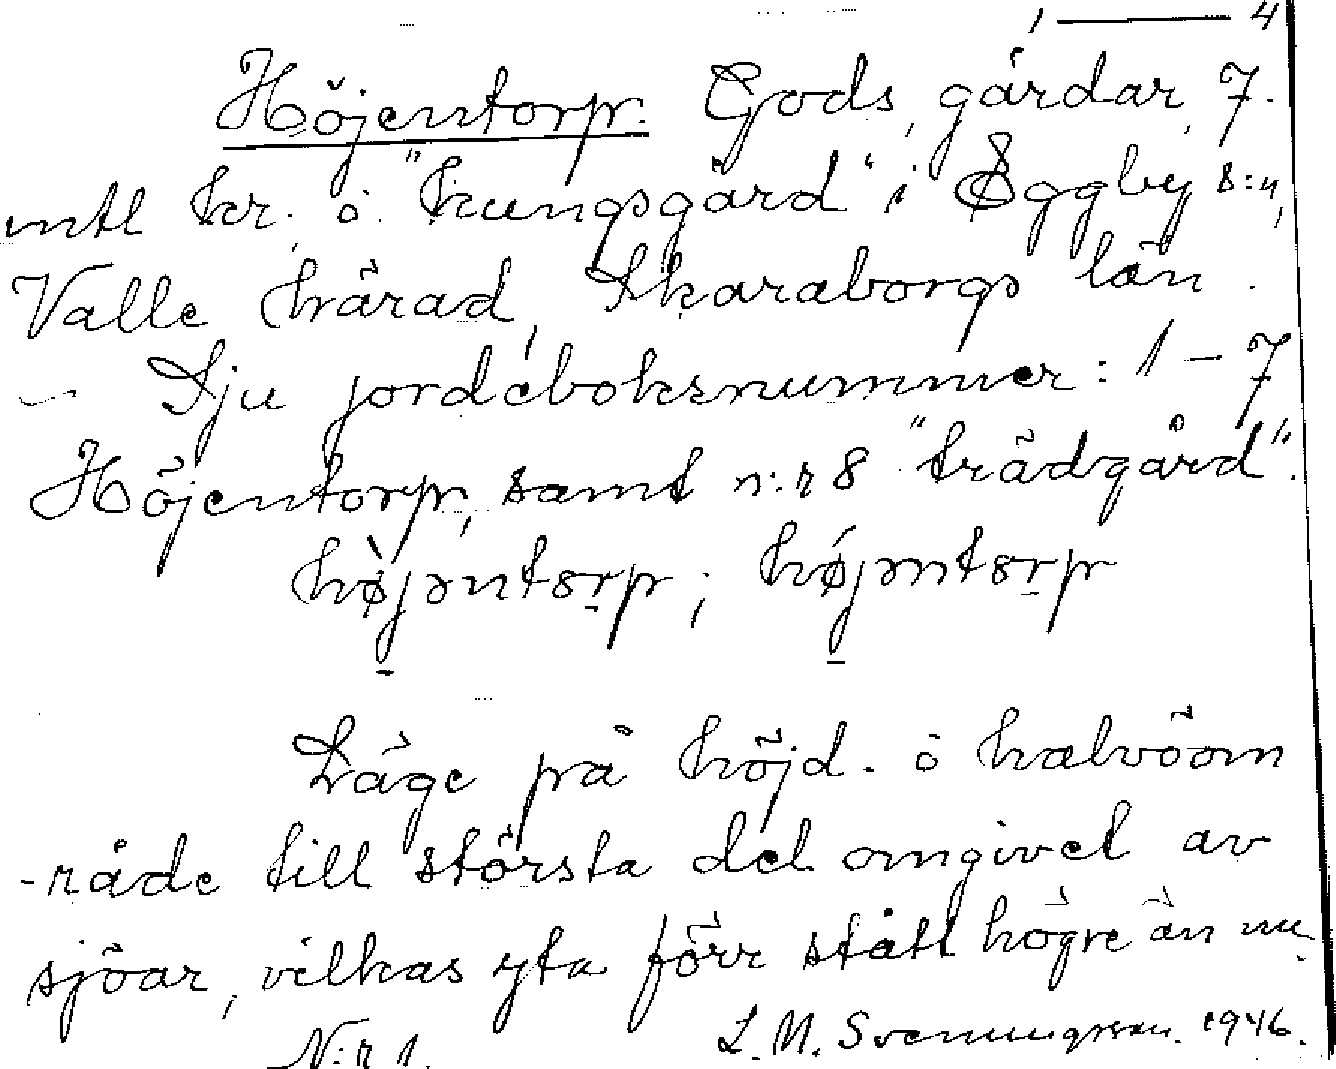 1 — 4
Höjentorp. Gods, gårdar, 7.
mtl kr. o. "kungsgård" i Eggby s:n,
Valle härad, Skaraborgs län.
— Sju jordeboksnummer: 1 – 7
Höjentorp, samt n:r 8 "trädgård".
hø̀jəntorp; højəntorp
Läge på höjd- o halvöom
-råde till största del omgivet av
sjöar, vilkas yta förr stått högre än nu.
N:r 1. L. M. Svenungsson. 1946.